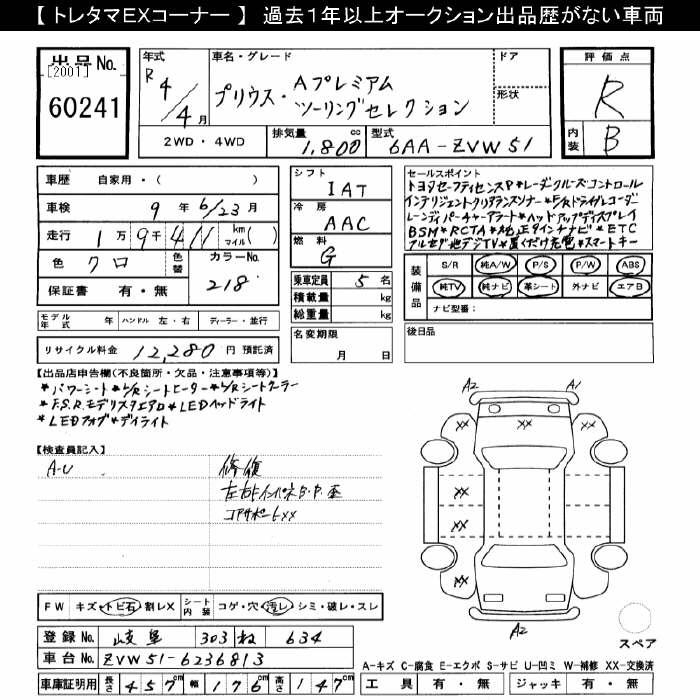 【 トレタマEXコーナー 】 過去1年以上オークション出品歴がない車両
出品No. [2001] 60241
年式 R 4/4月
車名・グレード プリウス・Aプレミアム ツーリングセレクション
ドア
形状
評価点 R
内装 B
2WD・4WD 排気量 1,800 cc 型式 6AA-ZVW51
車歴 自家用・( )
車検 9年 6/23月
走行 1万 9千 411 km(マイル)
色 クロ 色替 カラーNo. 218
保証書 有・無
シフト IAT
冷房 AAC
燃料 G
乗車定員 5 名
積載量 kg
総重量 kg
セールスポイント
トヨタセーフティセンスP*レーダークルーズコントロール
インテリジェントクリアランスソナー*F/Rドライブレコーダー
レーンディパーチャーアラート*ヘッドアップディスプレイ
BSM*RCTA*純正9インチナビ*ETC
フルセグ地デジTV*置くだけ充電*スマートキー
装備品 S/R 純A/W P/S P/W ABS
純TV 純ナビ 革シート 外ナビ エアB
ナビ型番:
モデル年式 年 ハンドル 左・右 ディーラー・並行
名変期限 月 日
後日品
リサイクル料金 12,280 円 預託済
【出品店申告欄(不良箇所・欠品・注意事項等)】
*パワーシート*L/Rシートヒーター*L/Rシートクーラー
*F.S.R.モデリスタエアロ*LEDヘッドライト
*LEDフォグ*デイライト
【検査員記入】
A-U
修復
左右Fインパネ B.P.歪
コアサポートXX
A2 A1
XX XX
XX
XX
XX XX
A2
スペア
FW キズ・トビ石・割レX シート内装 コゲ・穴・汚レ・シミ・破レ・スレ
登録No. 岐阜 303 ね 634
車台No. ZVW51-6236813
A-キズ C-腐食 E-エクボ S-サビ U-凹ミ W-補修 XX-交換済
車庫証明用 長さ 457cm 幅 176cm 高さ 147cm
工具 有・無 ジャッキ 有・無